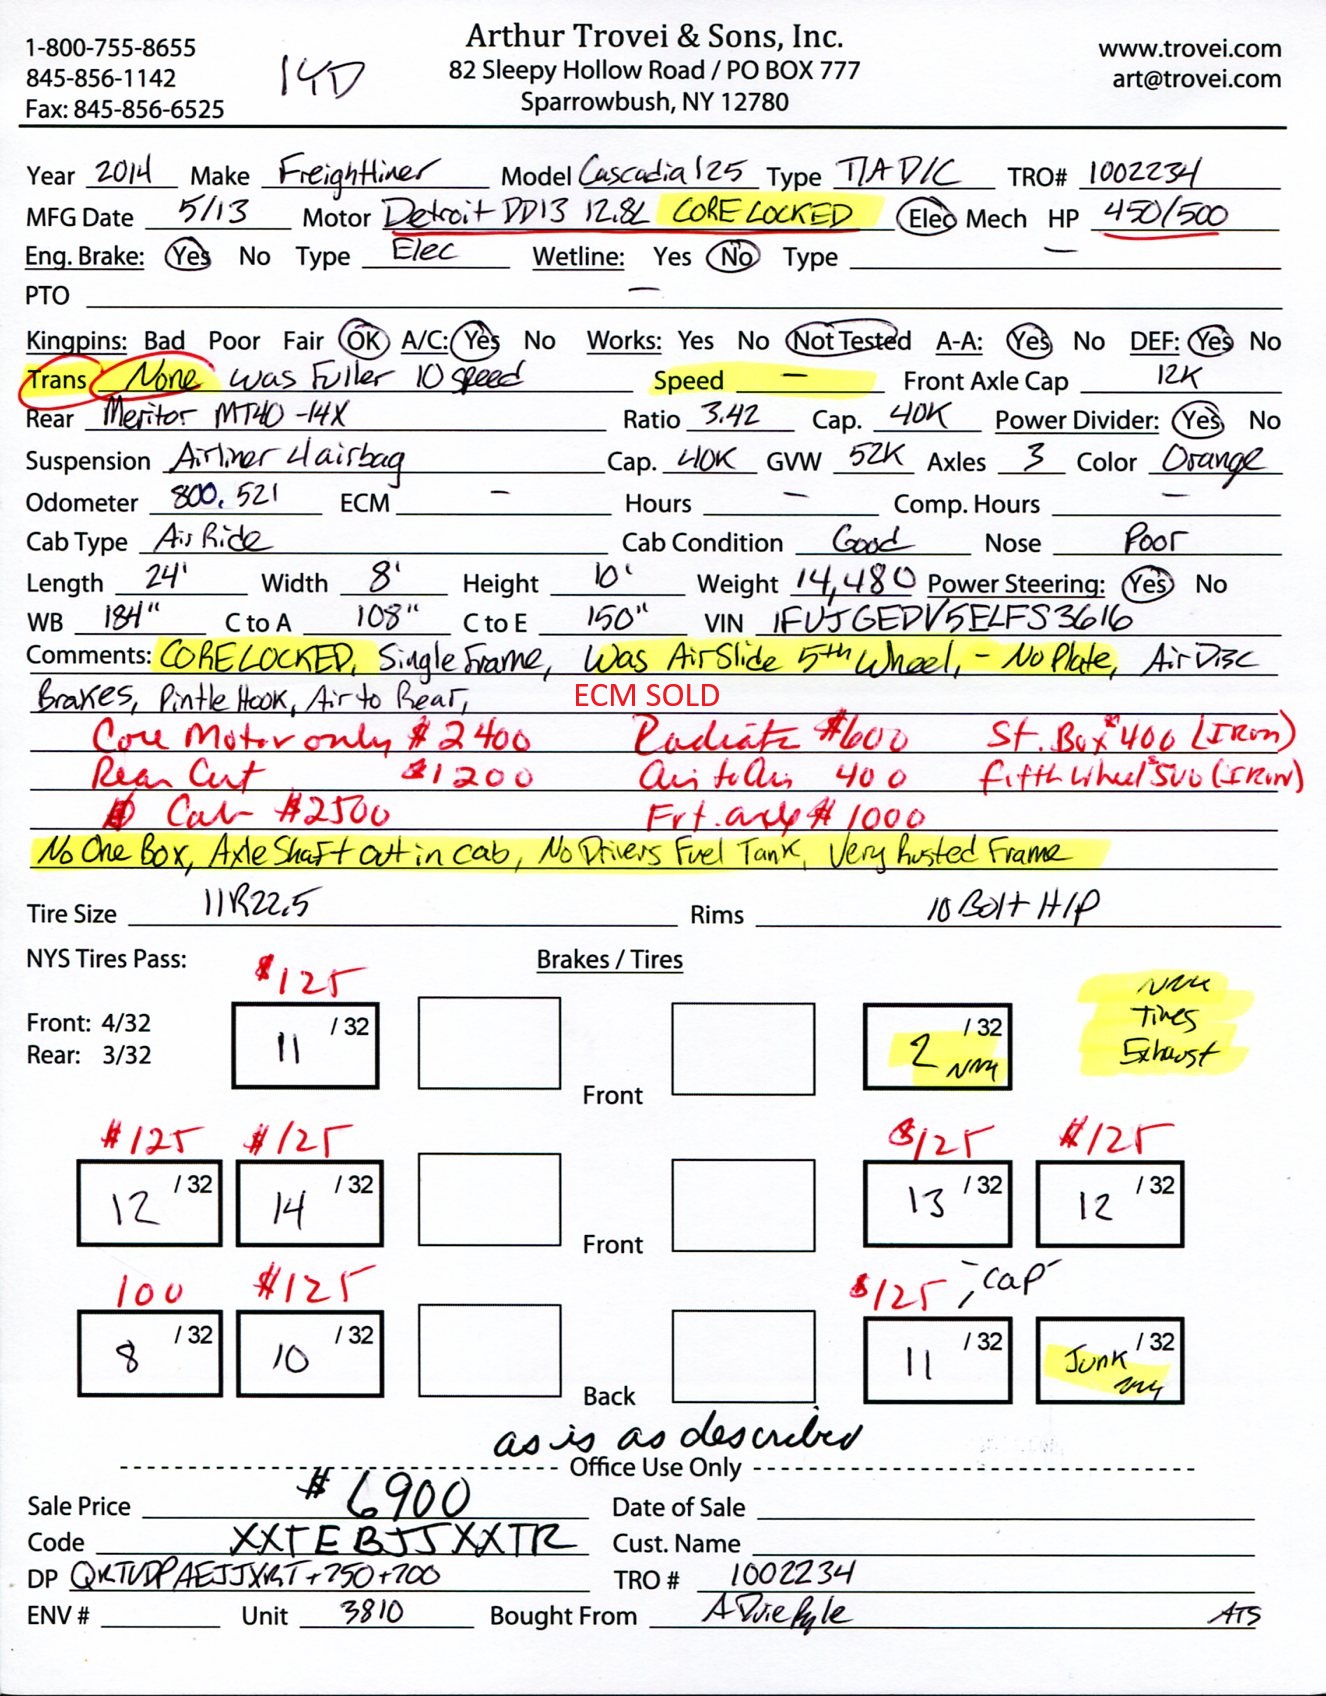 1-800-755-8655
845-856-1142
Fax: 845-856-6525
Arthur Trovei & Sons, Inc.
82 Sleepy Hollow Road / PO BOX 777
Sparrowbush, NY 12780
www.trovei.com
art@trovei.com
Year 2014 Make Freightliner Model Cascadia 125 Type T/A D/C TRO# 1002234
MFG Date 5/13 Motor Detroit DD13 12.8L CORE LOCKED Elec Mech HP 450/500
Eng. Brake: Yes No Type Elec Wetline: Yes No Type —
PTO —
Kingpins: Bad Poor Fair OK A/C: Yes No Works: Yes No Not Tested A-A: Yes No DEF: Yes No
Trans None was Fuller 10 speed Speed — Front Axle Cap 12K
Rear Meritor MT40-14X Ratio 3.42 Cap. 40K Power Divider: Yes No
Suspension Airliner 4 airbag Cap. 40K GVW 52K Axles 3 Color Orange
Odometer 800,521 ECM — Hours — Comp. Hours —
Cab Type Air Ride Cab Condition Good Nose Poor
Length 24' Width 8' Height 10' Weight 14,480 Power Steering: Yes No
WB 184" C to A 108" C to E 150" VIN 1FUJGEDV5ELFS3616
Comments: CORE LOCKED, Single Frame, Was Air Slide 5th Wheel, - No Plate, Air Disc
Brakes, Pintle Hook, Air to Rear, ECM SOLD
Core Motor only $2400 Radiator $600 St. Box $400 (IRon)
Rear Cut $1200 Air to Air 400 fifth wheel $500 (IRon)
Cab $2500 Frt. axle $1000
No One Box, Axle Shaft out in cab, No Drivers Fuel Tank, Very Rusted Frame
Tire Size 11R22.5 Rims 10 Bolt H/P
NYS Tires Pass: Brakes / Tires
$125
Front: 4/32
Rear: 3/32
11 /32
2 /32
Tires
Exhaust
Front
$125 $125 $125 $125
12 /32 14 /32 13 /32 12 /32
Front
100 $125 $125 , cap
8 /32 10 /32 11 /32 Junk /32
Back
as is as described
Office Use Only
Sale Price $6900 Date of Sale
Code XXTEBJJXXTR Cust. Name
DP +750+700 TRO # 1002234
ENV # Unit 3810 Bought From ATS